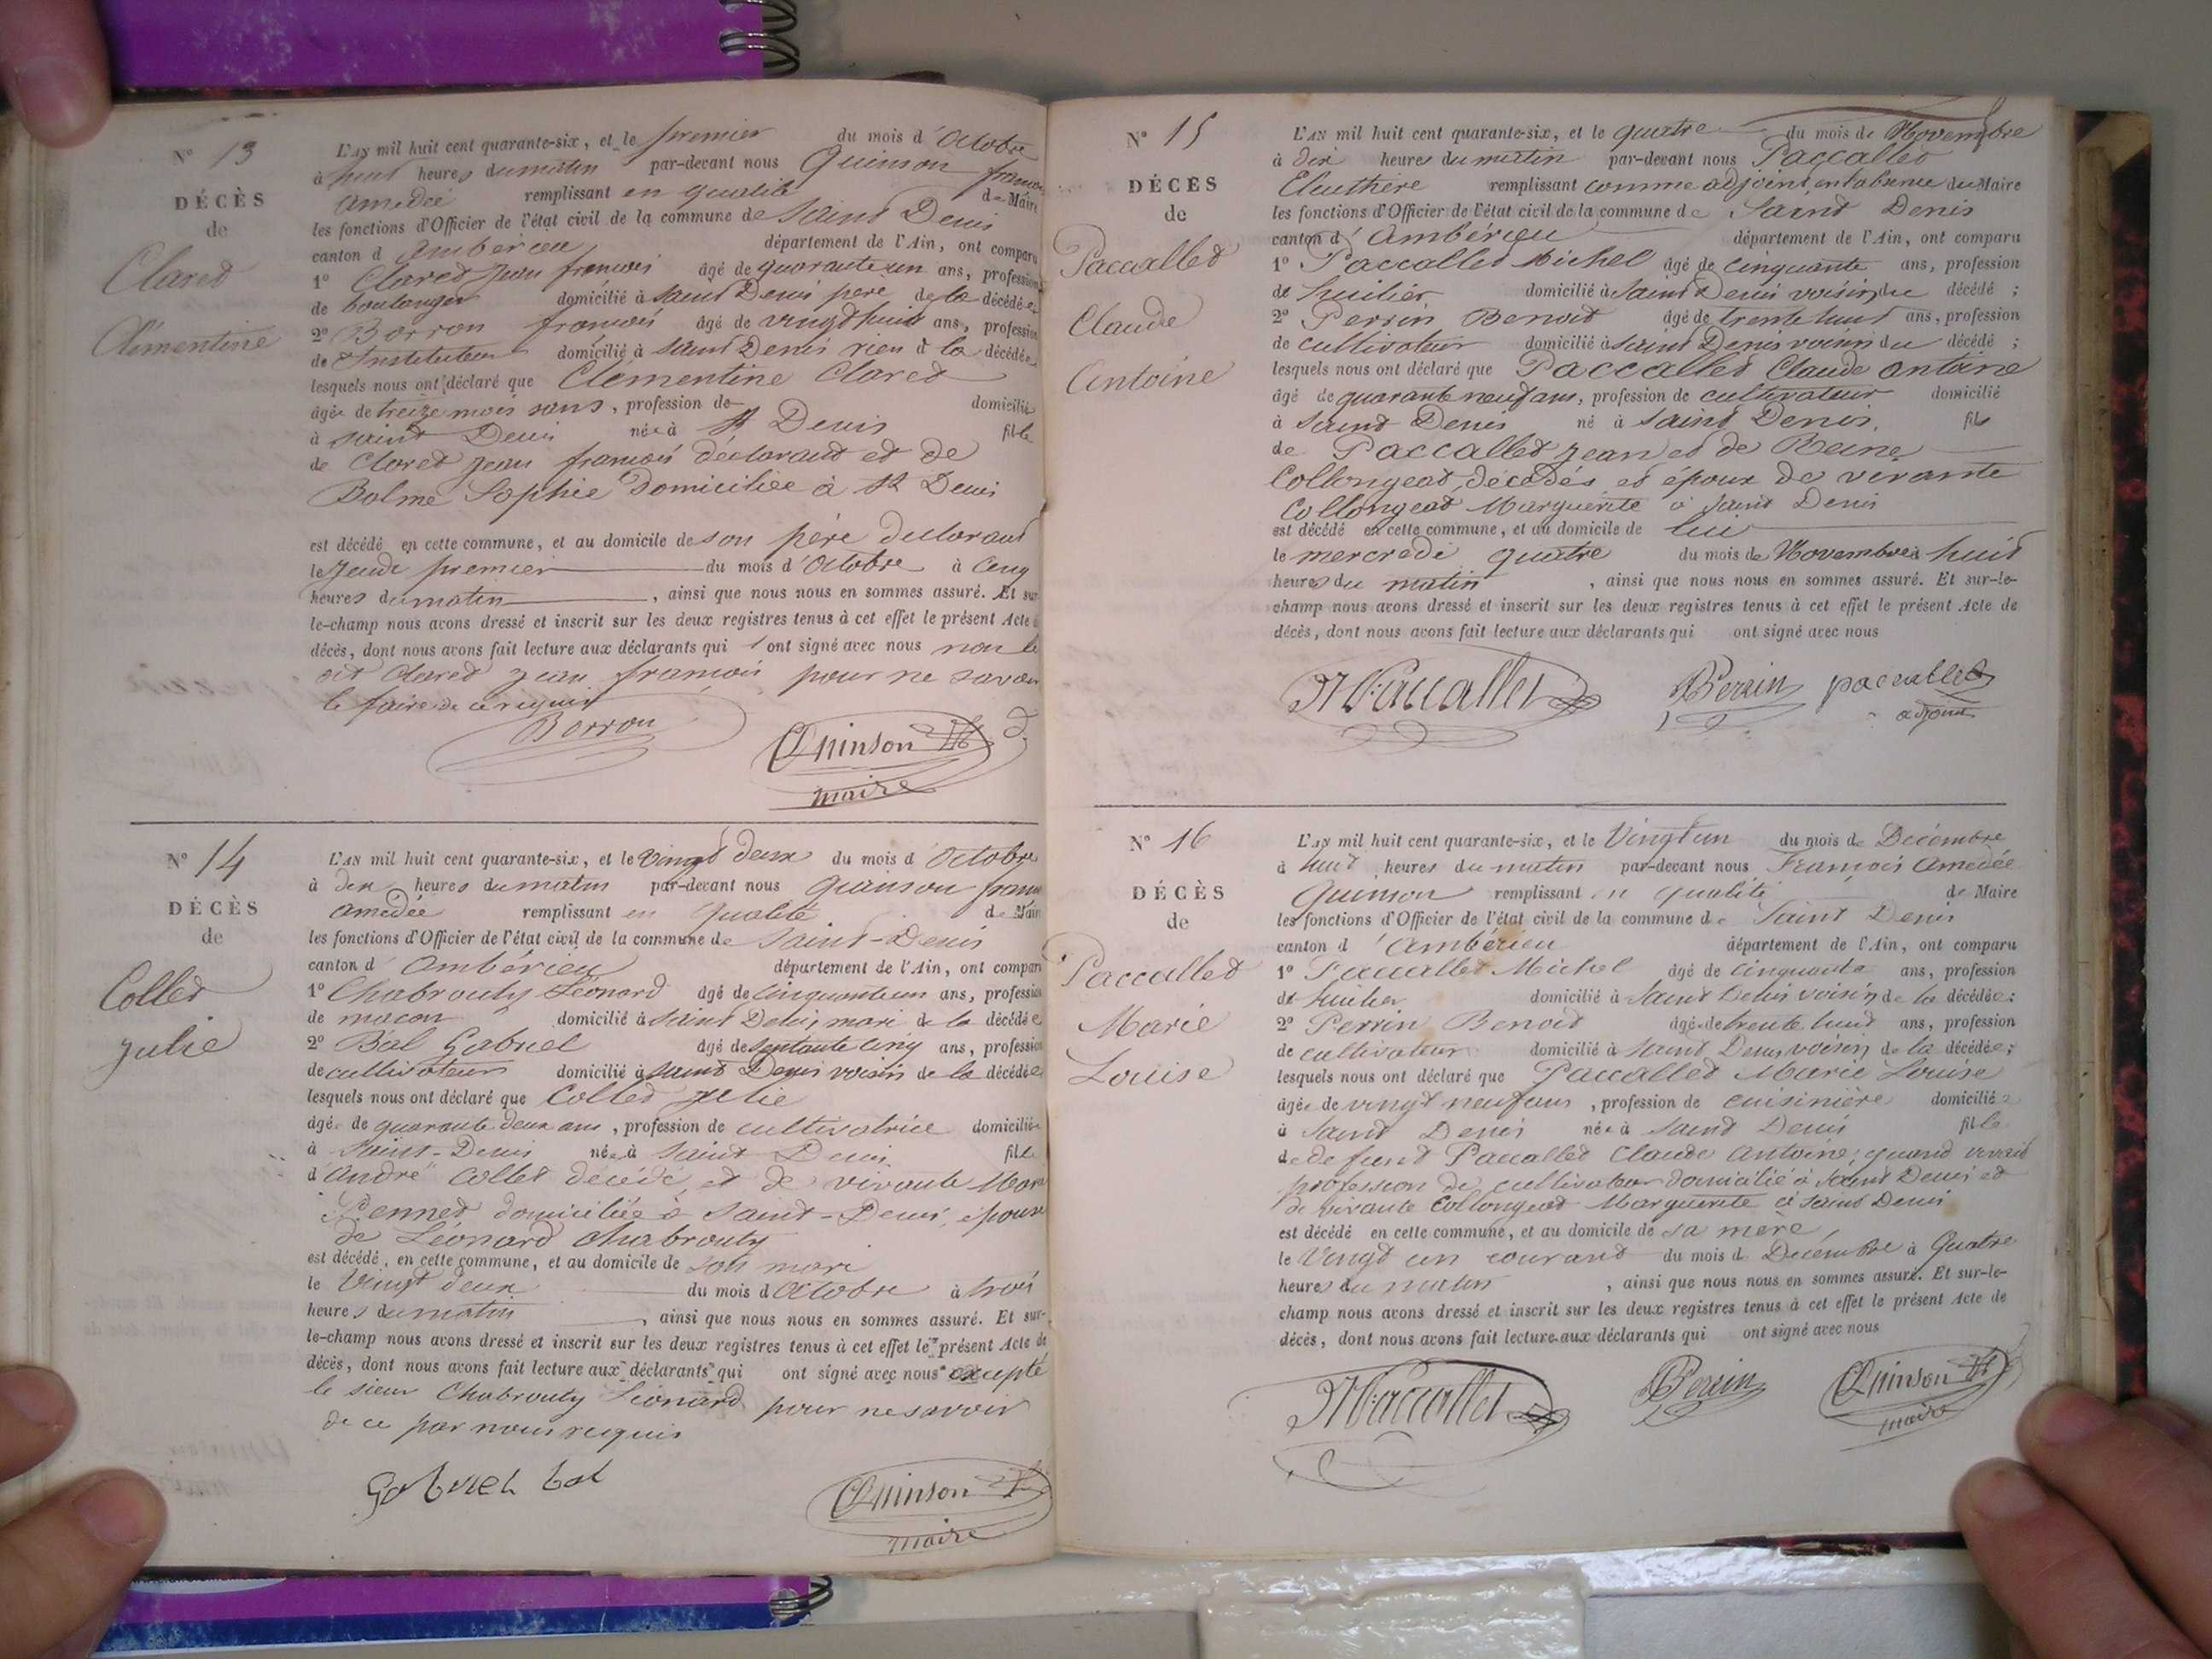 N° 13
DÉCÈS
de
Claret
Clémentine
L'AN mil huit cent quarante-six, et le premier du mois d'Octobre
à huit heures du matin par-devant nous Quinson françois
amédée remplissant en qualité de Maire
les fonctions d'Officier de l'état civil de la commune de Saint Denis
canton d'ambérieu département de l'Ain, ont comparu
1° Claret Jean françois âgé de quarante un ans, profession
de boulanger domicilié à Saint Denis père de la décédée
2° Borron françois âgé de vingt huit ans, profession
de Instituteur domicilié à Saint Denis rien à la décédée
lesquels nous ont déclaré que Clementine Claret
âgée de treize mois sans, profession de domiciliée
à Saint Denis née à St Denis fille
de Claret Jean françois déclarant et de
Bolme Sophie domiciliée à St Denis
est décédé en cette commune, et au domicile de son père déclarant
le jeudi premier du mois d'Octobre à cinq
heures du matin, ainsi que nous nous en sommes assuré. Et sur-
le-champ nous avons dressé et inscrit sur les deux registres tenus à cet effet le présent Acte de
décès, dont nous avons fait lecture aux déclarants qui ont signé avec nous non le
dit Claret Jean françois pour ne savoir
le faire de ce requis
Borron
Quinson
maire
N° 14
DÉCÈS
de
Collet
Julie
L'AN mil huit cent quarante-six, et le vingt deux du mois d'Octobre
à dix heures du matin par-devant nous Quinson françois
amédée remplissant en qualité de Maire
les fonctions d'Officier de l'état civil de la commune de Saint-Denis
canton d'Ambérieu département de l'Ain, ont comparu
1° Chabrouty Léonard âgé de cinquante un ans, profession
de macon domicilié à Saint Denis, mari de la décédée
2° Bal Gabriel âgé de septante cinq ans, profession
de cultivateur domicilié à Saint Denis voisin de la décédée
lesquels nous ont déclaré que Collet Julie
âgée de quarante deux ans, profession de cultivatrice domiciliée
à Saint-Denis née à Saint Denis fille
d'André Collet décédé, et de vivante Marie
Pennet domiciliée à Saint-Denis, épouse
de Léonard Chabrouty
est décédé, en cette commune, et au domicile de son mari
le vingt deux du mois d'Octobre à trois
heures du matin, ainsi que nous nous en sommes assuré. Et sur-
le-champ nous avons dressé et inscrit sur les deux registres tenus à cet effet le présent Acte de
décès, dont nous avons fait lecture aux déclarants qui ont signé avec nous excepté
le sieur Chabrouty Léonard pour ne savoir
de ce par nous requis
Gabriel bal
Quinson
maire
N° 15
DÉCÈS
de
Paccallet
Claude
Antoine
L'AN mil huit cent quarante-six, et le quatre du mois de Novembre
à dix heures du matin par-devant nous Paccallet
Eleuthère remplissant comme adjoint, en l'absence du Maire
les fonctions d'Officier de l'état civil de la commune de Saint Denis
canton d'Ambérieu département de l'Ain, ont comparu
1° Paccallet Michel âgé de cinquante ans, profession
de huilier domicilié à Saint Denis voisin du décédé ;
2° Perrin Benoit âgé de trente huit ans, profession
de cultivateur domicilié à Saint Denis voisin du décédé ;
lesquels nous ont déclaré que Paccallet Claude antoine
âgé de quarante neuf ans, profession de cultivateur domicilié
à Saint Denis né à Saint Denis. fils
de Paccallet Jean et de Reine
Collongeat, décédés et époux de vivante
Collongeat Marguerite à Saint Denis
est décédé en cette commune, et au domicile de lui
le mercredi quatre du mois de Novembre à huit
heures du matin, ainsi que nous nous en sommes assuré. Et sur-le-
champ nous avons dressé et inscrit sur les deux registres tenus à cet effet le présent Acte de
décès, dont nous avons fait lecture aux déclarants qui ont signé avec nous
Paccallet Perrin paccallet
adjoint
N° 16
DÉCÈS
de
Paccallet
Marie
Louise
L'AN mil huit cent quarante-six, et le Vingt un du mois de Décembre
à huit heures du matin par-devant nous François Amedée
Quinson remplissant en qualité de Maire
les fonctions d'Officier de l'état civil de la commune de Saint Denis
canton d'Ambérieu département de l'Ain, ont comparu
1° Paccallet Michel âgé de cinquante ans, profession
de huilier domicilié à Saint Denis voisin de la décédée ;
2° Perrin Benoit âgé de trente huit ans, profession
de cultivateur domicilié à Saint Denis voisin de la décédée ;
lesquels nous ont déclaré que Paccallet Marie Louise
âgée de vingt neuf ans, profession de cuisinière domiciliée
à Saint Denis née à Saint Denis fille
de defunt Paccallet Claude Antoine, quand vivait
profession de cultivateur domicilié à Saint Denis et
de vivante Collongeat Marguerite à Saint Denis
est décédé en cette commune, et au domicile de sa mère,
le Vingt un courant du mois de Décembre à Quatre
heures du matin, ainsi que nous nous en sommes assuré. Et sur-le-
champ nous avons dressé et inscrit sur les deux registres tenus à cet effet le présent Acte de
décès, dont nous avons fait lecture aux déclarants qui ont signé avec nous
Paccallet Perrin Quinson
maire